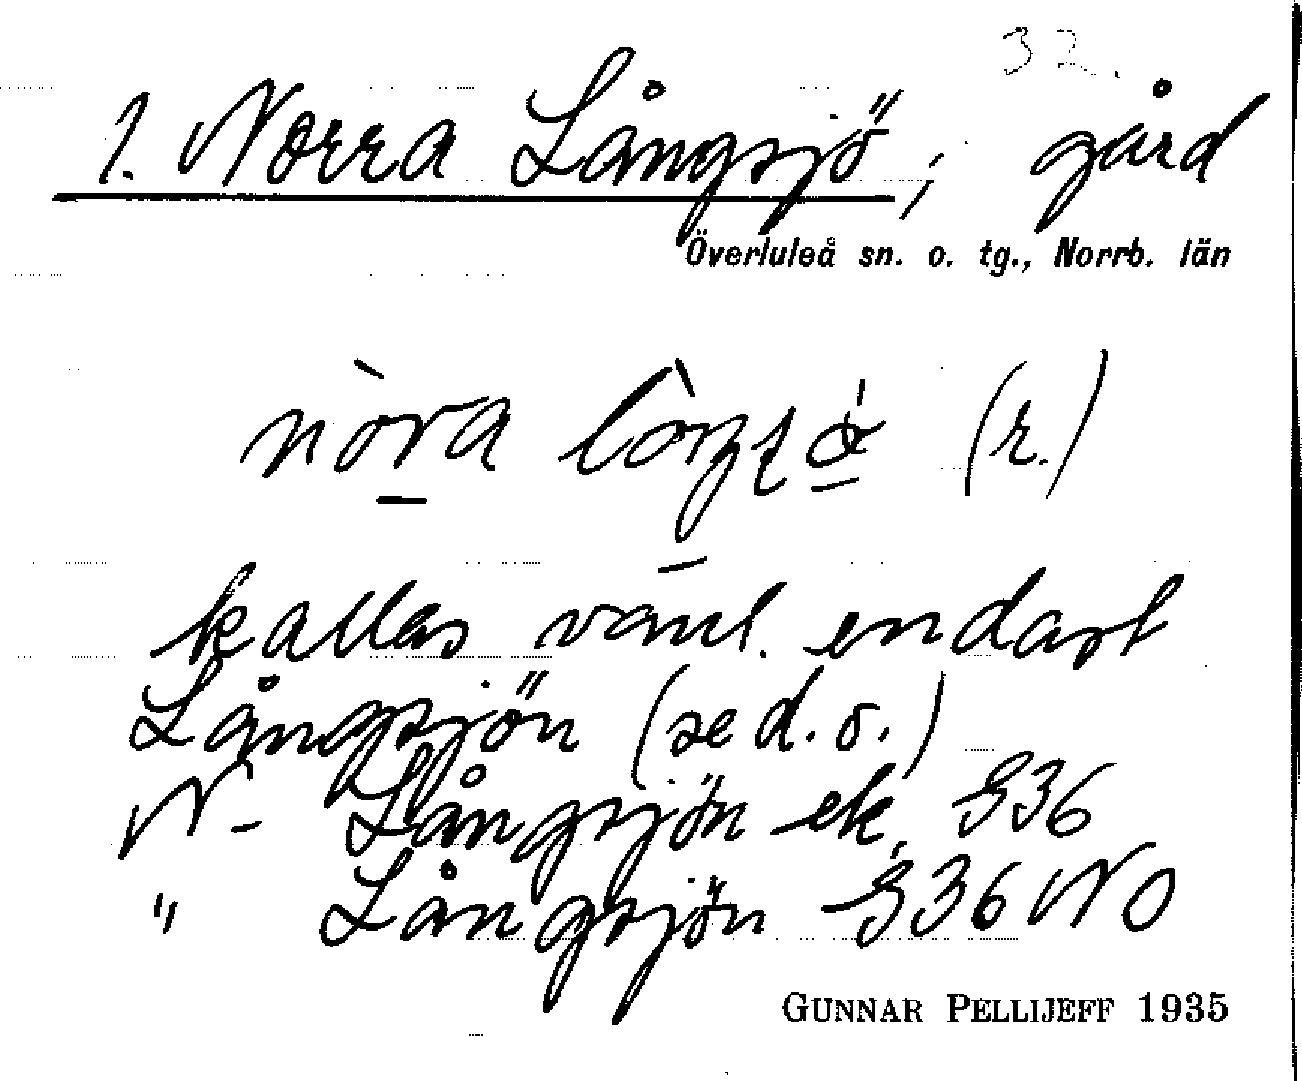 32.
1. Norra Långsjö, gård
Överluleå sn. o. tg., Norrb. län
nòra (r.)
kallas vanl. endast
Långsjön (se d. o.)
N- Långsjön ek, 336
" Långsjön 336 NO
GUNNAR PELLIJEFF 1935